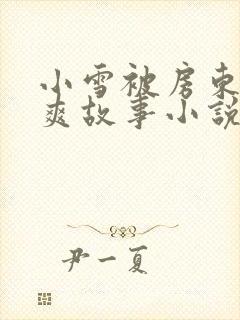 小雪被房东
爽故事小説
尹一夏